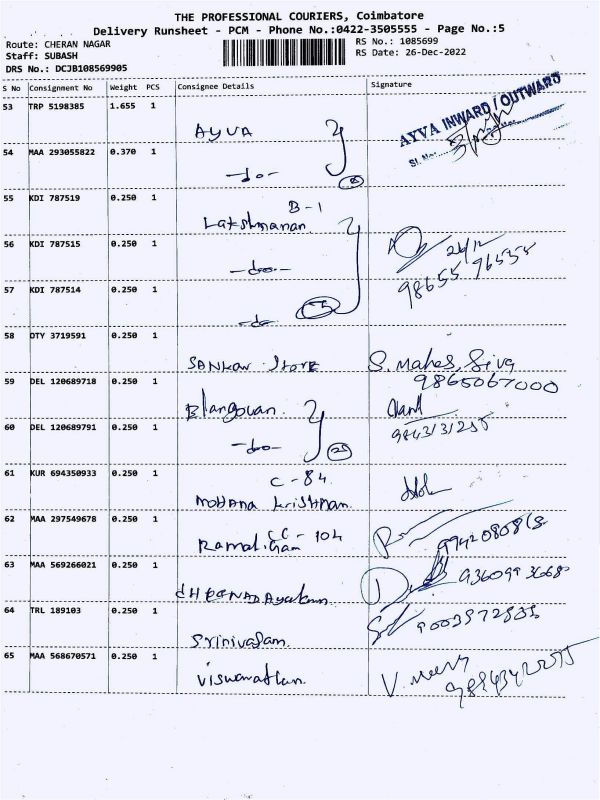 THE PROFESSIONAL COURIERS, Coimbatore
Delivery Runsheet - PCM - Phone No.:0422-3505555 - Page No.:5
Route: CHERAN NAGAR RS No.: 1085699
Staff: SUBASH RS Date: 26-Dec-2022
DRS No.: DCJB108569905
S No Consignment No Weight PCS Consignee Details Signature
53 TRP 5198385 1.655 1
AYVA AYVA INWARD / OUTWARD
Sl. No.
54 MAA 293055822 0.370 1
-do-
55 KDI 787519 0.250 1
B-1
Lakshmanan.
56 KDI 787515 0.250 1
-do- 26/12
98655 96535
57 KDI 787514 0.250 1
-do-
58 OTY 3719591 0.250 1
SANKAR STORE S. Mahes, Siva
9865067000
59 DEL 120689718 0.250 1
Elangovan.
60 DEL 120689791 0.250 1
-do- 9843131255
61 KUR 694350933 0.250 1
C-84
Mohana Krishnan.
62 MAA 297549678 0.250 1
CC-104
Ramaligam
63 MAA 569266021 0.250 1
64 TRL 189103 0.250 1
Srinivasan.
65 MAA 568670571 0.250 1
Viswanathan.